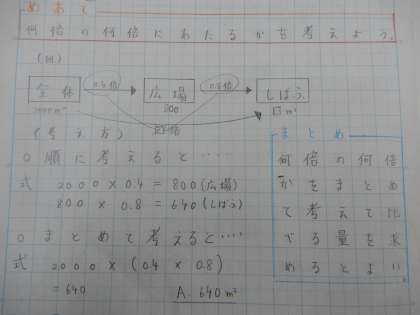 めあて
何倍の何倍にあたるかを考えよう。
(図)
0.4倍
0.8倍
全体
広場
しばふ
800
□m²
□倍
(考え方)
○順に考えると‥‥
式 2000×0.4=800(広場)
800×0.8=640(しばふ)
○まとめて考えると‥‥
式 2000×(0.4×0.8)
=640
A. 640m²
まとめ
何倍の何倍
かをまとめ
て考えて比
べる量を求
めるとよい